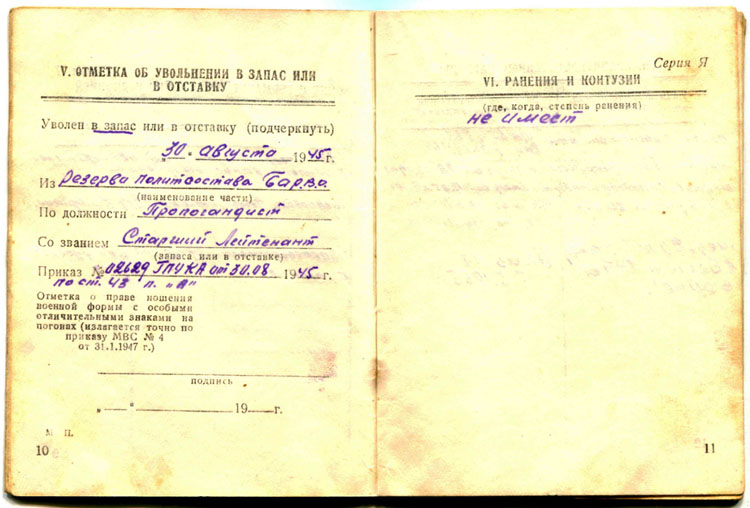 V. ОТМЕТКА ОБ УВОЛЬНЕНИИ В ЗАПАС ИЛИ
В ОТСТАВКУ
Уволен в запас или в отставку (подчеркнуть)
„30" августа 1945 г.
Из Резерва политсостава Бар.В.О.
(наименование части)
По должности Пропогандист
Со званием Старший Лейтенант
(запаса или в отставке)
Приказ № 02629 ГПУКА от 30.08 1945 г.
по ст. 43 п. „А"
Отметка о праве ношения
военной формы с особыми
отличительными знаками на
погонах (излагается точно по
приказу МВС № 4
от 31.1.1947 г.)
подпись
„ — " 19 г.
М. П.
10
Серия Я
VI. РАНЕНИЯ И КОНТУЗИИ
(где, когда, степень ранения)
не имеет
11